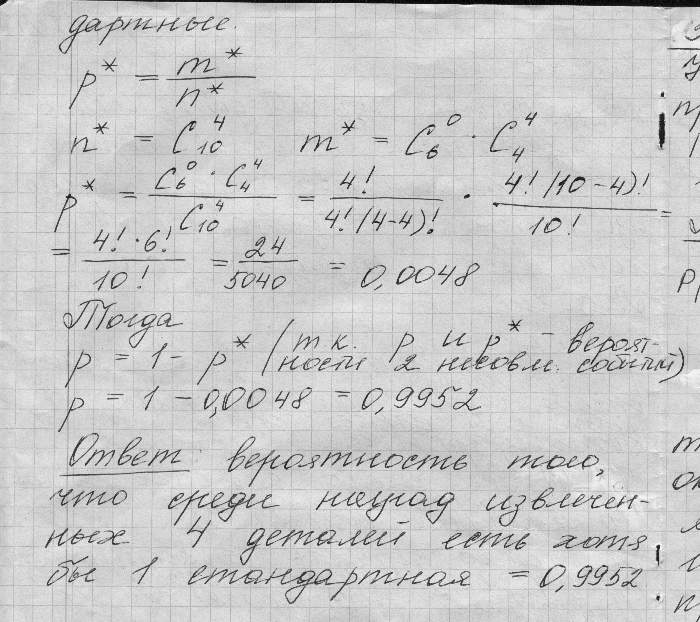 дартные.
p* = m* / n*
n* = C₁₀⁴   m* = C₆⁰ · C₄⁴
p* = C₆⁰ · C₄⁴ / C₁₀⁴ = 4! / 4!(4-4)! · 4!(10-4)! / 10! =
= 4! · 6! / 10! = 24 / 5040 = 0,0048
Тогда
p = 1 - p* (т к. p и p* - вероят-
ности 2 несовм. событий)
p = 1 - 0,0048 = 0,9952
Ответ: вероятность того,
что среди наугад извлечен-
ных 4 деталей есть хотя
бы 1 стандартная = 0,9952